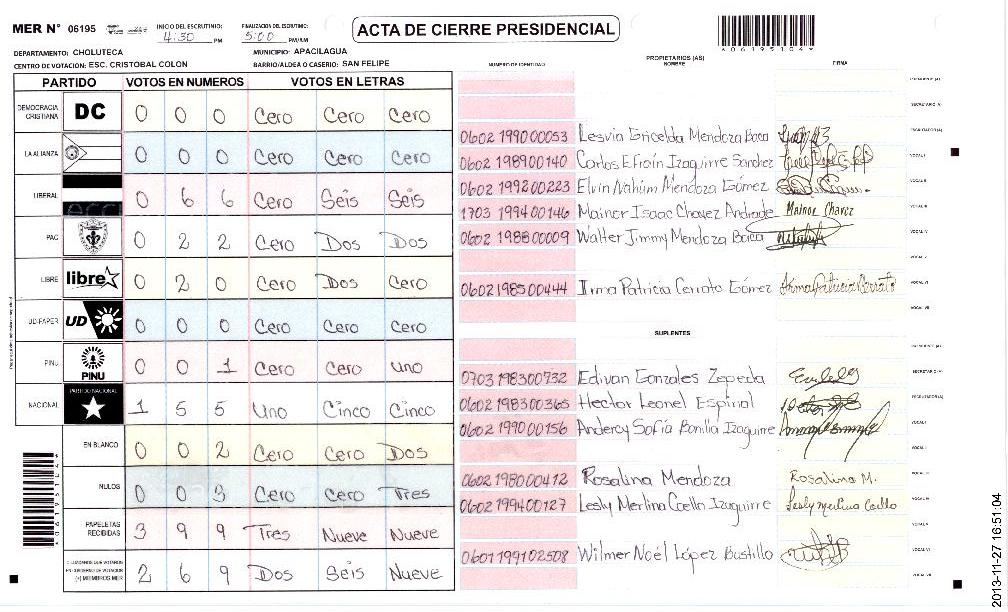 MER N° 06195
INICIO DEL ESCRUTINIO: 4:30 PM
FINALIZACION DEL ESCRUTINIO: 5:00 PM/AM
ACTA DE CIERRE PRESIDENCIAL
*06195104*
DEPARTAMENTO: CHOLUTECA
MUNICIPIO: APACILAGUA
CENTRO DE VOTACION: ESC. CRISTOBAL COLON
BARRIO/ALDEA O CASERIO: SAN FELIPE
PARTIDO VOTOS EN NUMEROS VOTOS EN LETRAS
DEMOCRACIA CRISTIANA DC 0 0 0 Cero Cero Cero
LA ALIANZA 0 0 0 Cero Cero Cero
LIBERAL 0 6 6 Cero Seis Seis
PAC 0 2 2 Cero Dos Dos
LIBRE libre 0 2 0 Cero Dos Cero
UD-FAPER UD 0 0 0 Cero Cero Cero
PINU PINU 0 0 1 Cero Cero uno
NACIONAL PARTIDO NACIONAL 1 5 5 Uno Cinco Cinco
EN BLANCO 0 0 2 Cero Cero Dos
NULOS 0 0 3 Cero Cero Tres
PAPELETAS RECIBIDAS 3 9 9 Tres Nueve Nueve
CIUDADANOS QUE VOTARON (+) MIEMBROS MER 2 6 9 Dos Seis Nueve
NUMERO DE IDENTIDAD PROPIETARIOS (AS) NOMBRE FIRMA
PRESIDENTE (A)
SECRETARIO (A)
0602 199000053 Lesvia Gricelda Mendoza Baca ESCRUTADOR (A)
0602 198900140 Carlos Efraín Izaguirre Sanchez VOCAL I
0602 199200223 Elvin Nahúm Mendoza Gómez VOCAL II
1703 199400146 Mainor Isaac Chavez Andrade Mainor Chavez VOCAL III
0602 198800009 Walter Jimmy Mendoza Baca VOCAL IV
VOCAL V
0602 198500444 Irma Patricia Cerrato Gómez Irma Patricia Cerrato VOCAL VI
VOCAL VII
SUPLENTES
PRESIDENTE (A)
0703 198300732 Edivan Gonzales Zepeda SECRETARIO (A)
0602 198300365 Hector Leonel Espinal ESCRUTADOR (A)
0602 199000156 Andercy Sofía Bonilla Izaguirre VOCAL I
VOCAL II
0602 198000412 Rosalina Mendoza Rosalina M. VOCAL III
0602 199400127 Lesly Merlina Coello Izaguirre Lesly merlina Coello VOCAL IV
VOCAL V
0601 199102508 Wilmer Noél López Bustillo VOCAL VI
VOCAL VII
*06195104*
2013-11-27 16:51:04